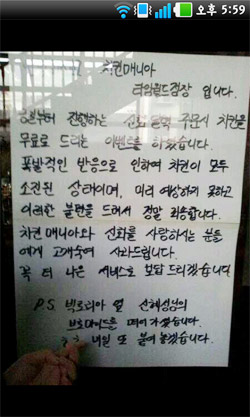 오후 5:59
치킨매니아
타임월드점장 입니다.
진행하는 신화 주문시 치킨을
무료로 드리는 이벤트를 하였습니다.
폭발적인 반응으로 인하여 치킨이 모두
소진된 상태이며, 미리 예상하지 못하고
이러한 불편을 드려서 정말 죄송합니다.
치킨 매니아와 신화를 사랑하시는 분들
에게 고개숙여 사과드립니다.
꼭 더 나은 서비스로 보답 드리겠습니다.
P.S. 빅토리아 옆 신혜성님의
브로마이드를 떼어 가셨습니다.
내일 또 붙여 놓겠습니다.